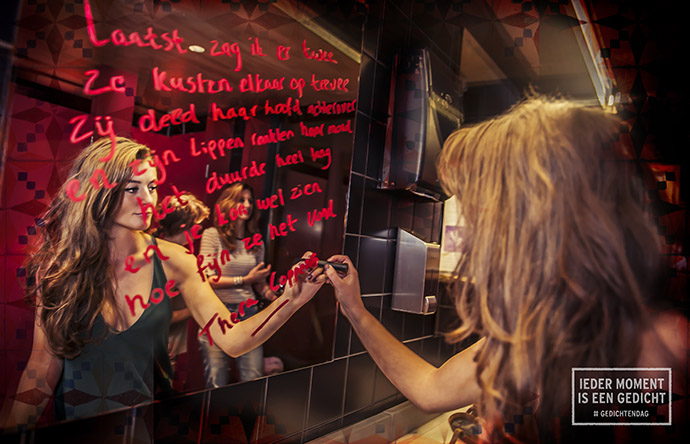 Laatst zag ik er twee
Ze kusten elkaar op
Zij deed haar hoofd achterover
en zijn lippen raakten haar mond
het duurde heel lang
en je kon wel zien
hoe fijn ze het vond
Thera Coppens
IEDER MOMENT
IS EEN GEDICHT
# GEDICHTENDAG